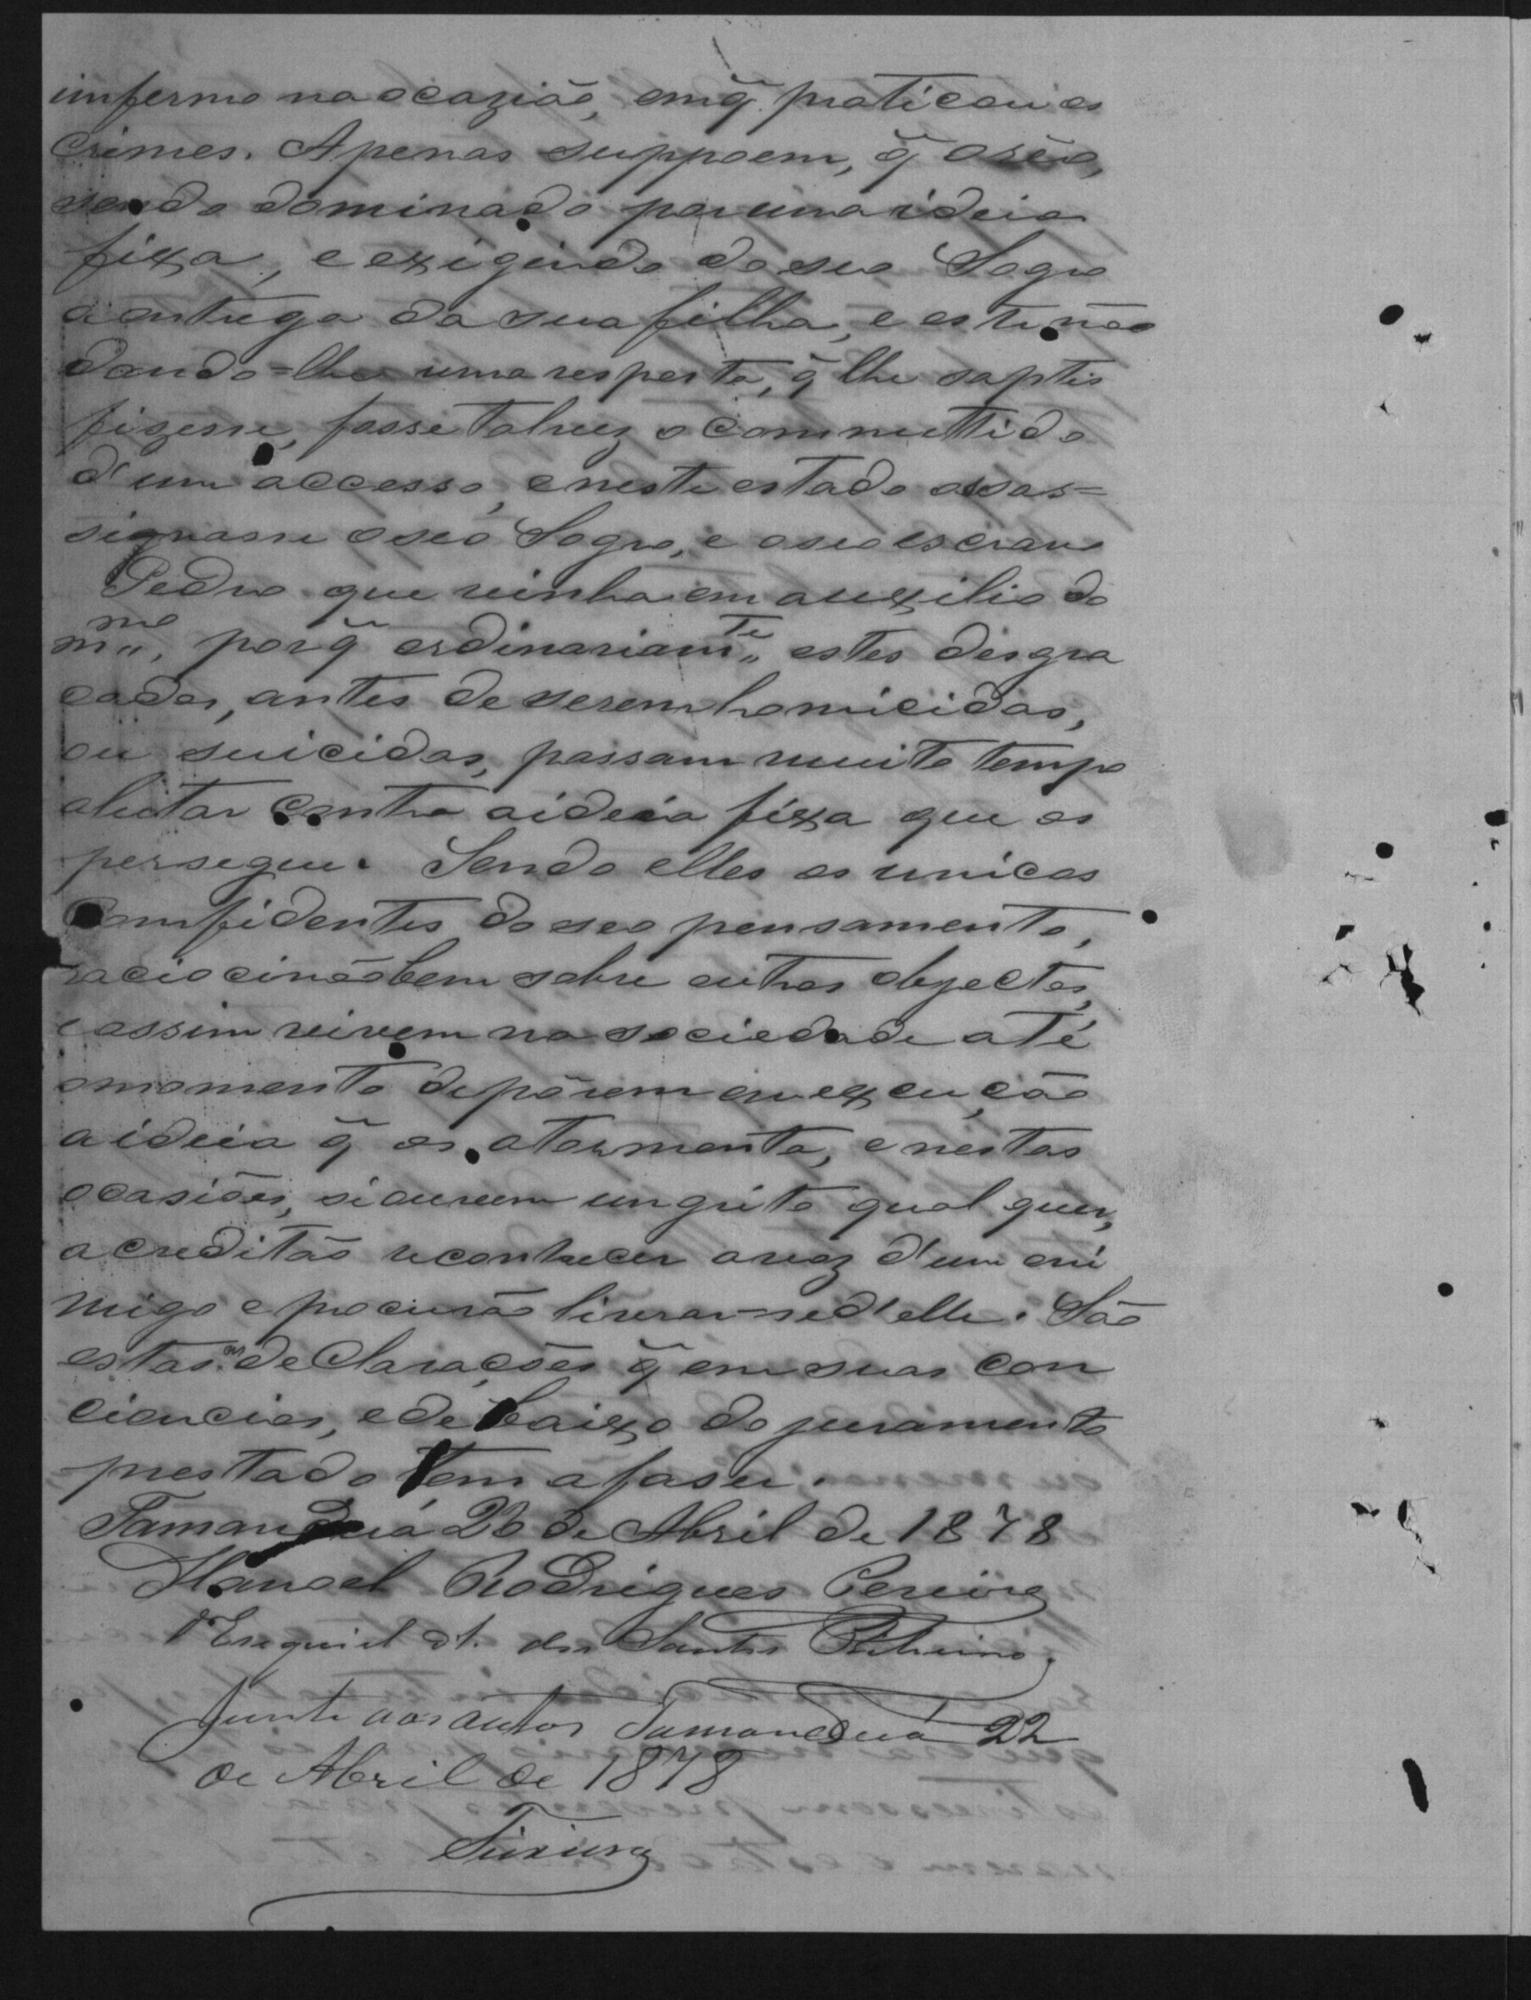 imfermo na ocazião, em q̃ praticou os
crimes. Apenas suppoem, q̃ o réo,
sendo dominado por uma ideia
fixa, e exigindo do seu Sogro
a entrega da sua filha, e este não
dando=lhe uma resposta, q̃ lhe saptis
fizesse, fosse talvez accommettido
d'um accesso, e neste estado assas=
signasse o seo Sogro, e o seo escravo
Pedro que vinha em auxilio do
m.mo, porq̃ ordinariam.te estes disgra
cados, antes de serem homicidas,
ou suicidas, passam muito tempo
a lutar contra a ideia fixa que os
persegue. Sendo elles os unicos
comfidentes do seo pensamento,
raciocinão bem sobre outros objectos,
e assim vivem na sociedade até
o momento de pôrem em execução
a ideia q̃ os atormenta, e nestas
ocasiões, si ouvem um grito qual quer,
acreditão reconhecer a voz d'um eni
migo e procurão livrar=se d'elle. São
estas as declarações q̃ em suas con
ciencias, e de baixo do juramento
prestado tem a faser.
Tamanduá 26 de Abril de 1878
Manoel Rodrigues Pereira
Esequiel A. dos Santos Ribeiro.
Junte aos autos Tamanduá 22
de Abril de 1878